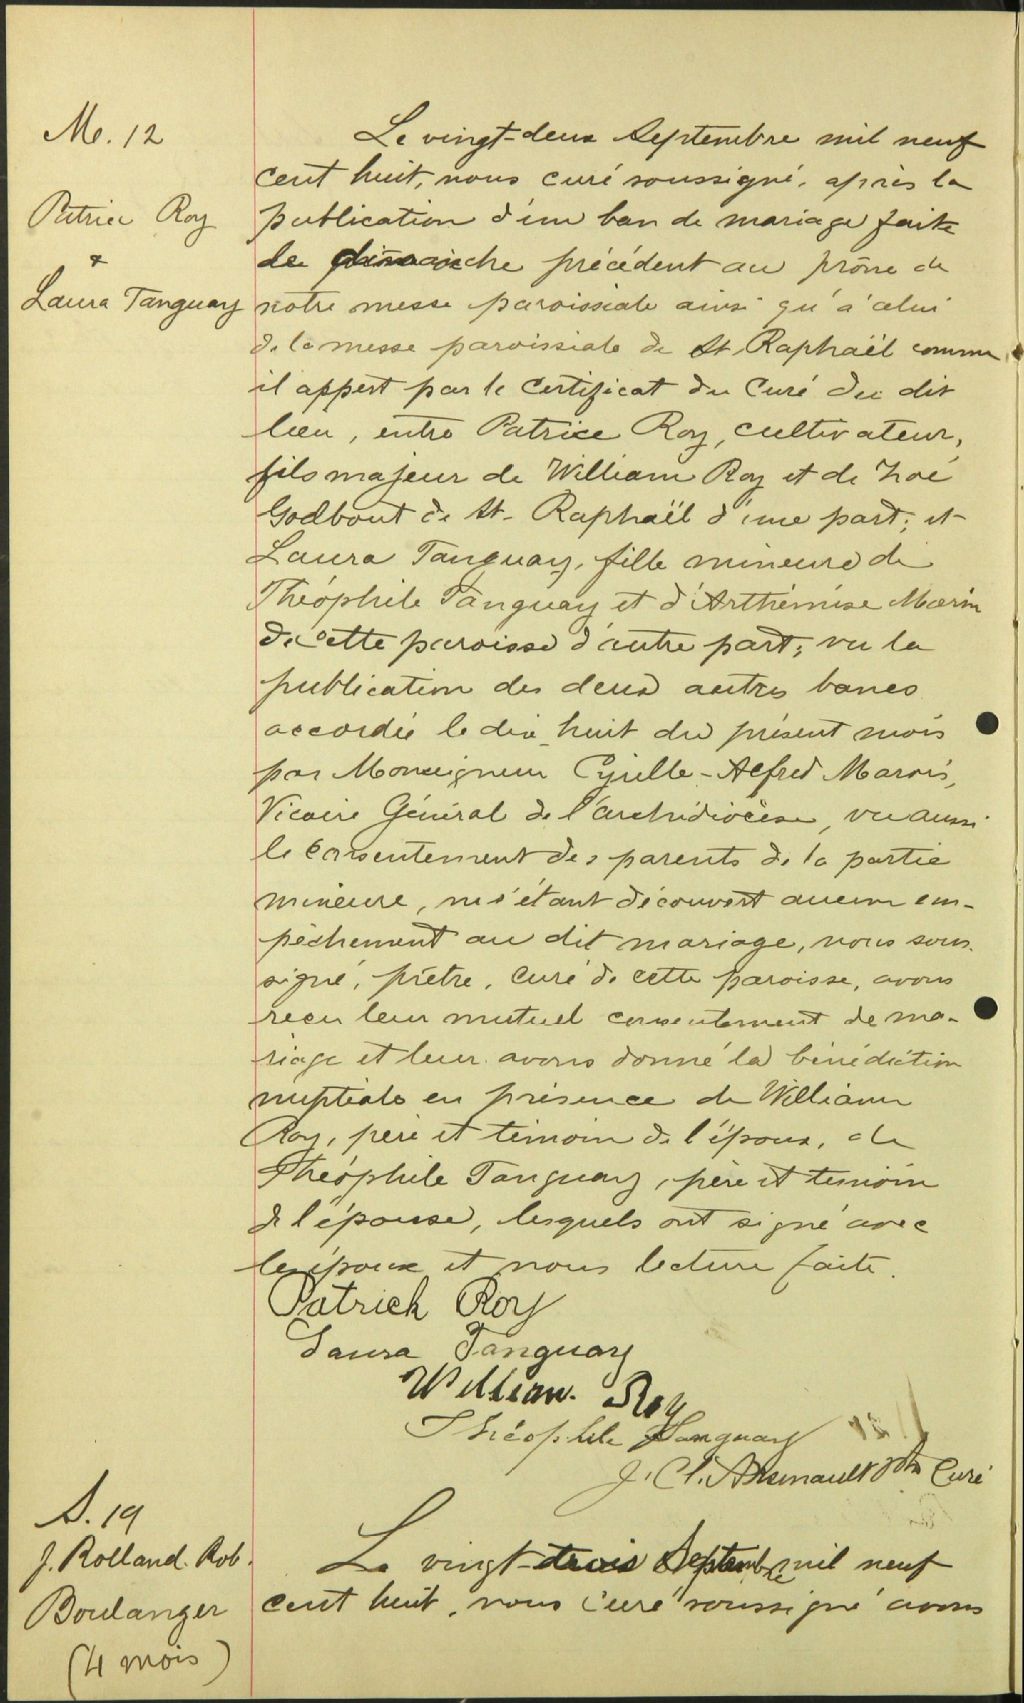 M. 12
Patrice Roy
&
Laura Tanguay
Le vingt-deux Septembre mil neuf
cent huit, nous curé soussigné, après la
publication d'un ban de mariage faite
le dimanche précédent au prône de
notre messe paroissiale ainsi qu'à celui
de la messe paroissiale de St. Raphaël comme
il appert par le certificat du Curé du dit
lieu, entre Patrice Roy, cultivateur,
fils majeur de William Roy et de Zoé
Godbout de St. Raphaël d'une part; et
Laura Tanguay, fille mineure de
Théophile Tanguay et d'Arthémise Morin
de cette paroisse d'autre part; vu la
publication des deux autres bancs
accordée le dix-huit du présent mois
par Monseigneur Cyrille-Alfred Marois,
Vicaire Général de l'archidiocèse, vu aussi
le consentement des parents de la partie
mineure, ne s'étant découvert aucun em-
pêchement au dit mariage, nous sous-
signé, prêtre, curé de cette paroisse, avons
reçu leur mutuel consentement de ma-
riage et leur avons donné la bénédiction
nuptiale en présence de William
Roy, père et témoin de l'époux, de
Théophile Tanguay, père et témoin
de l'épouse, lesquels ont signé avec
les époux et nous lecture faite.
Patrick Roy
Laura Tanguay
William Roy
Théophile Tanguay
J. Cl. Arsenault ptre Curé
S. 19
J. Rolland Rob.
Boulanger
(4 mois)
Le vingt-trois Septembre mil neuf
cent huit, nous Curé soussigné avons